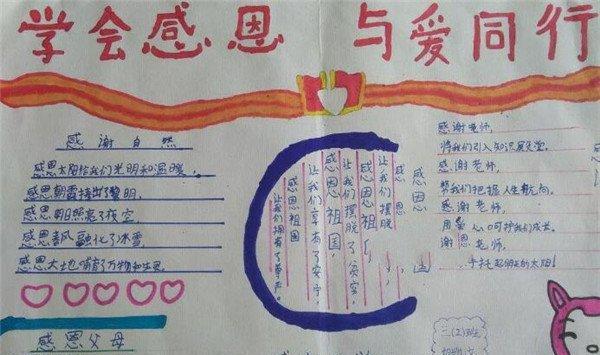 学会感恩 与爱同行
感谢自然
感恩太阳给我们光明和温暖,
感恩朝霞捧出了黎明,
感恩朝日照亮了夜空
感恩春风融化了冰雪,
感恩大地哺育了万物和生灵
感恩父母
感恩
感恩祖国,
让我们摆脱了
让我们摆脱了贫穷,
感恩祖国,
让我们享有了安宁,
感恩祖国
让我们拥有了尊严。
感谢老师,
将我们引入知识殿堂。
感谢老师,
帮我们把握人生航向。
感谢老师,
用 心呵护我们成长。
谢恩老师,
手托起明天的太阳!
三(2)班